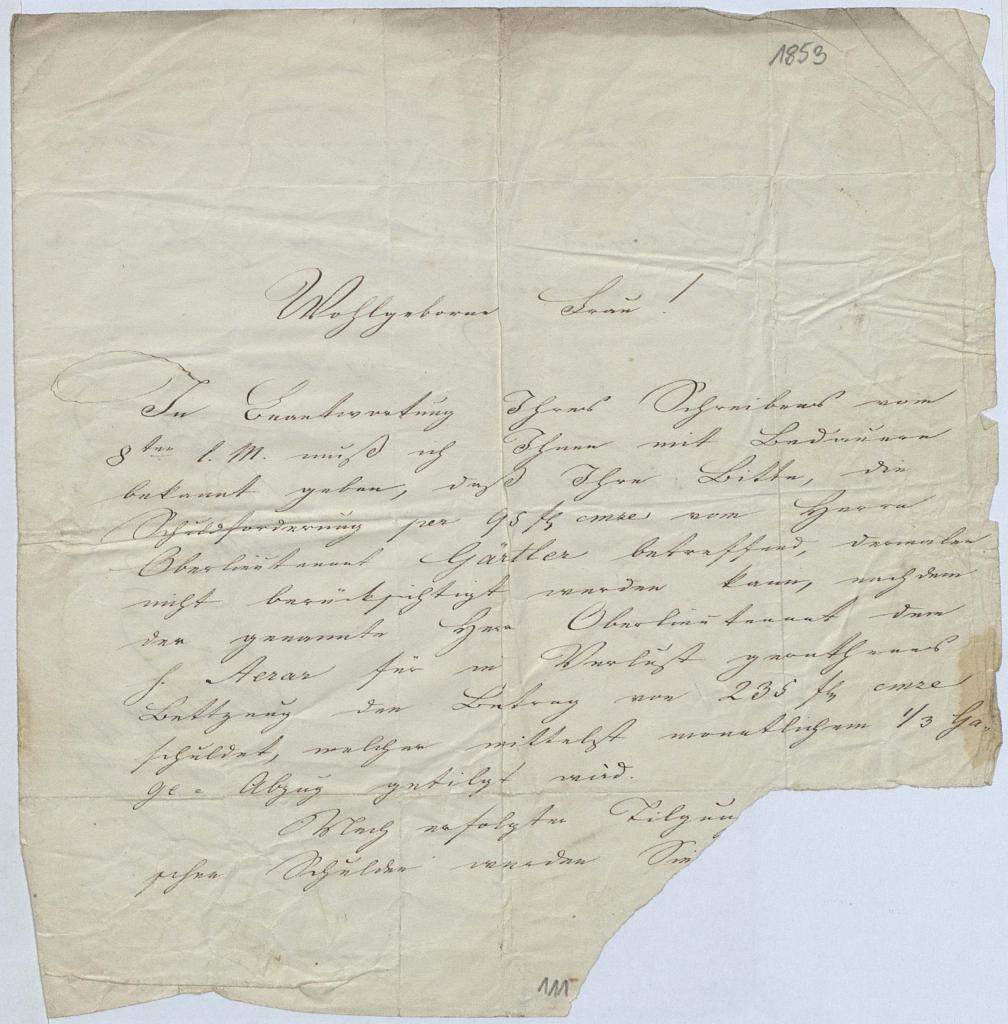 1853
Wohlgeborne Frau!
In Beantwortung Ihres Schreibens vom
8ten l. M. muß ich Ihnen mit Bedauern
bekannt geben, daß Ihre Bitte, die
Schuldforderung per 95 fl cmze vom Herrn
Oberlieutenant Gärtler betreffend, dermalen
nicht berücksichtigt werden kann, nachdem
der genannte Herr Oberlieutenant dem
h. Aerar für in Verlust gerathenes
Bettzeug den Betrag von 235 fl cmze
schuldet, welcher mittelst monatlichem 1/3 Ga-
ge-Abzug getilgt wird.
Nach erfolgter Tilgun
schen Schulden werden Sie
111